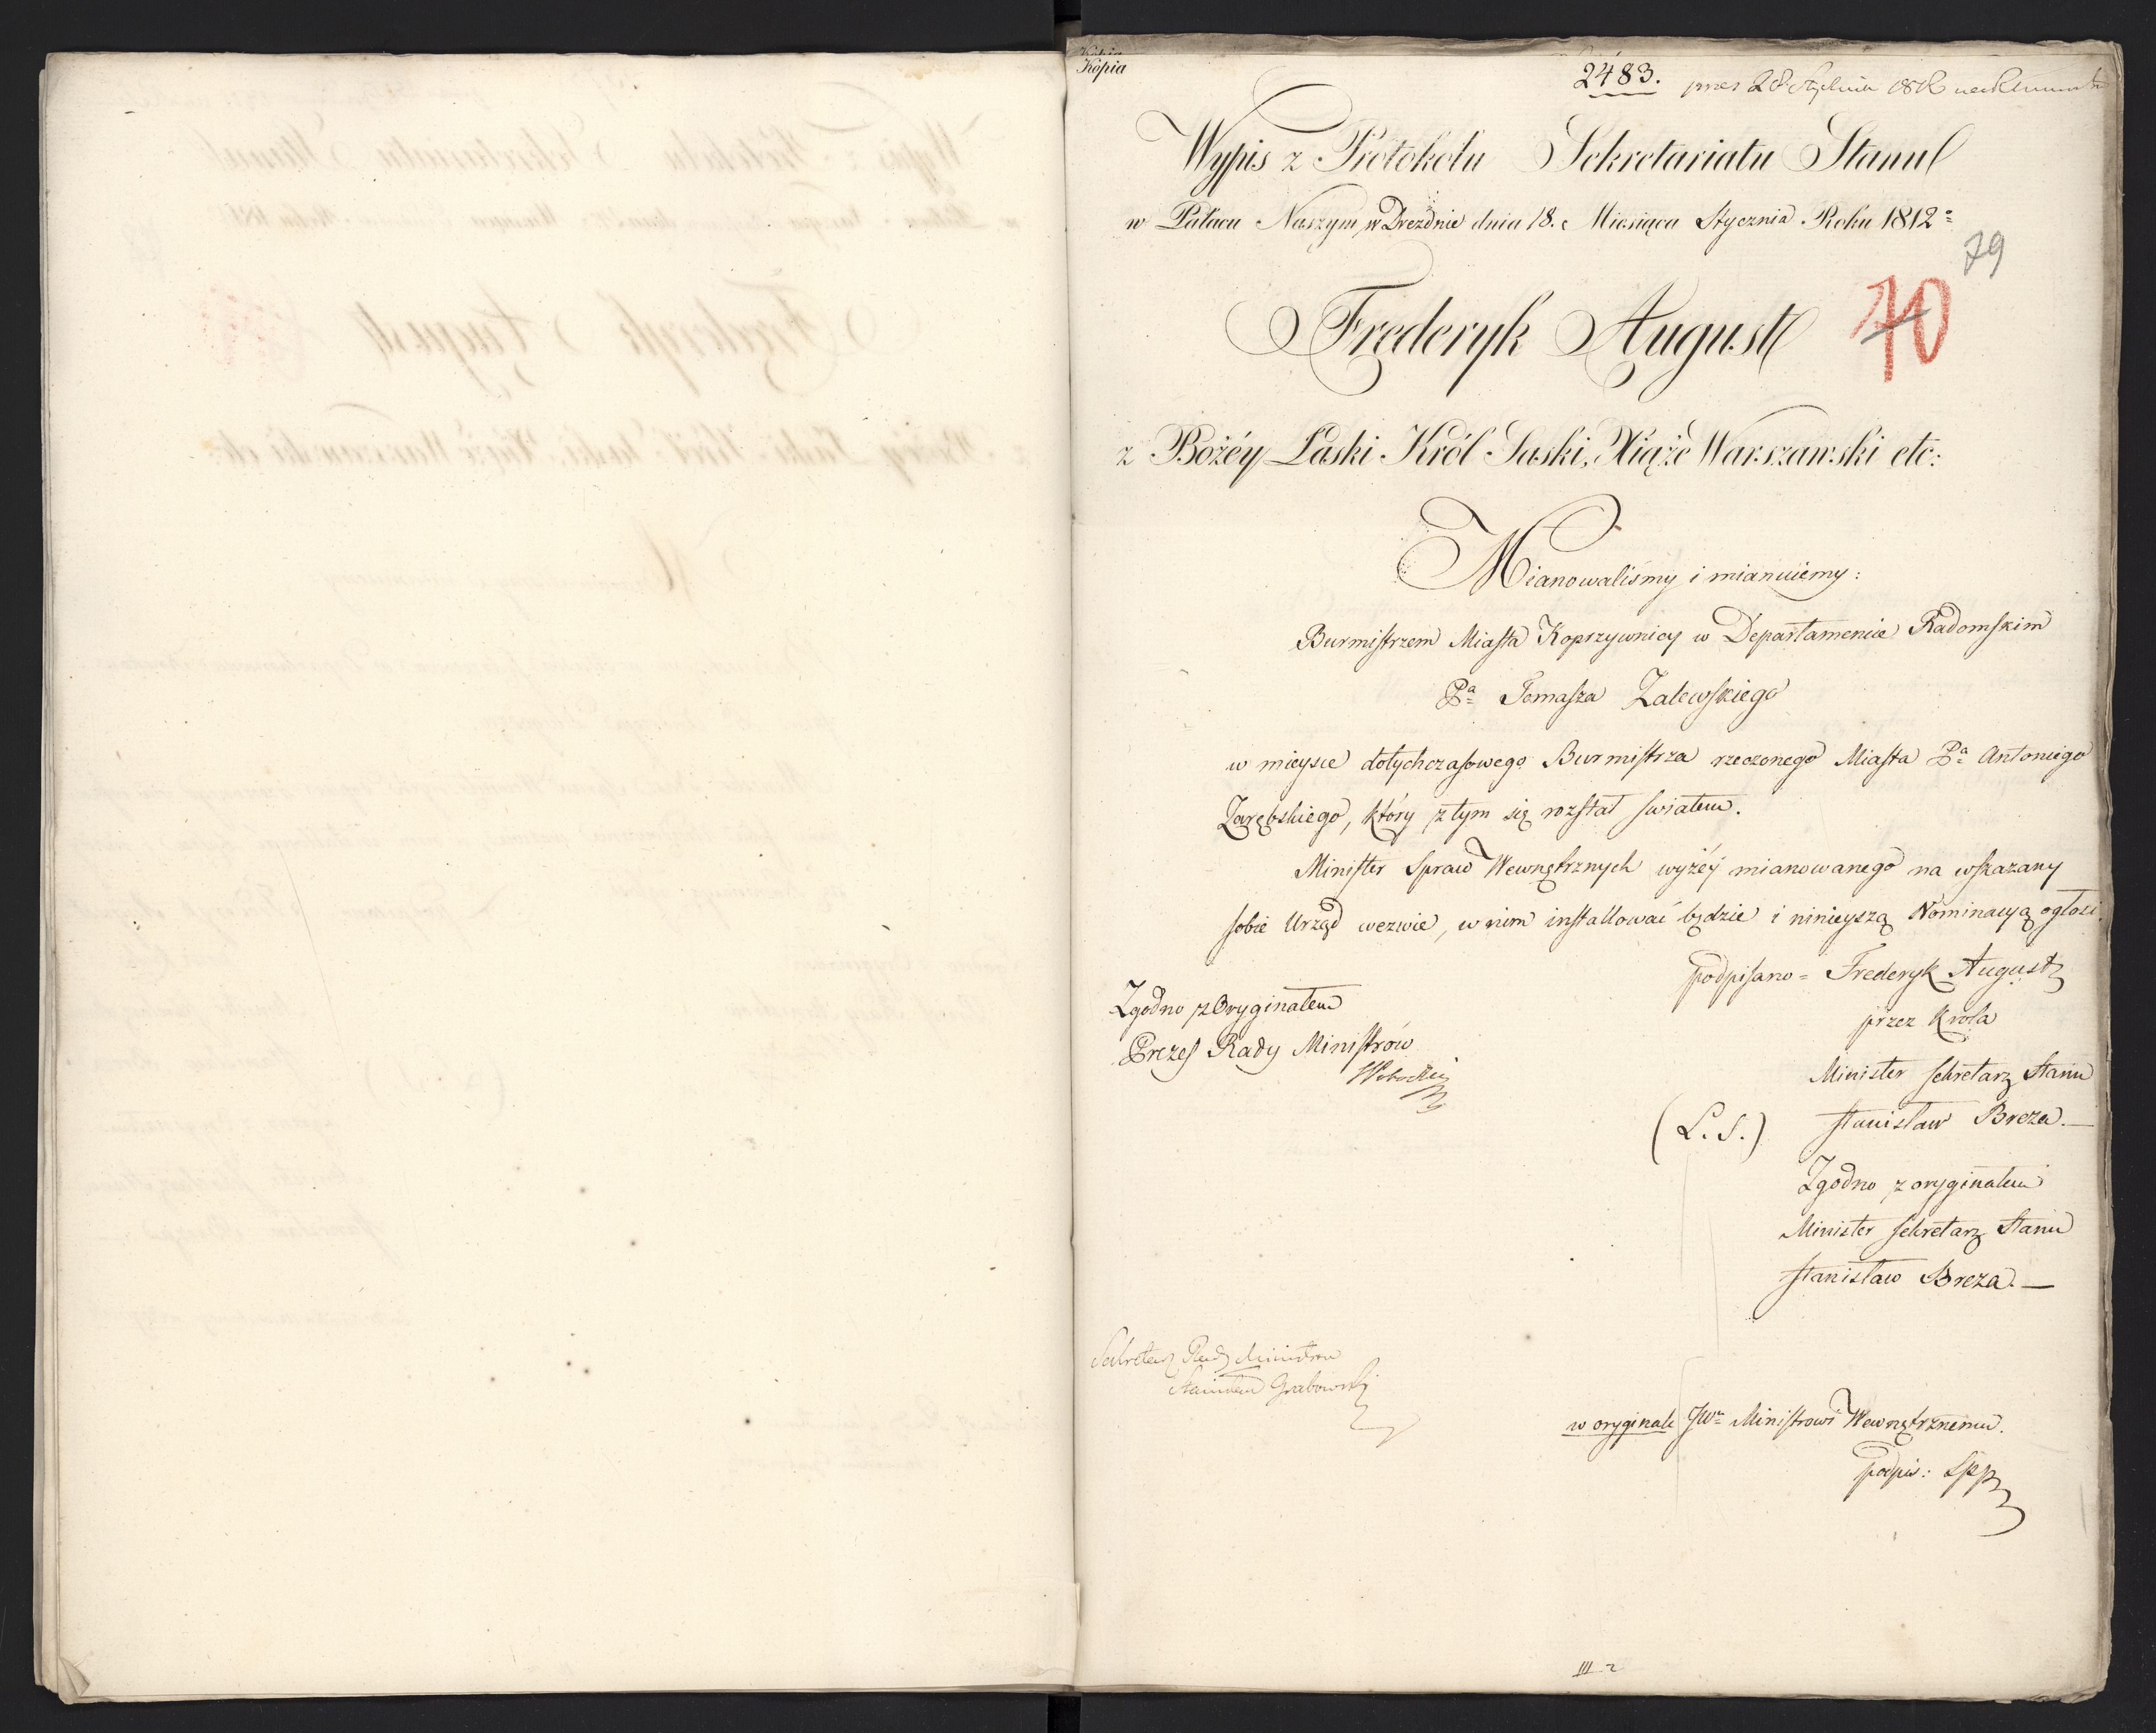 Kopia
2483. pres 28 Stycznia 1812
Wypis z Protokołu Sekretariatu Stanu
w Pałacu Naszym w Dreznie dnia 18. Miesiąca Stycznia Roku 1812
79
70
Frederyk August
z Bożéy Łaski Król Saski, Xiąże Warszawski etc:
Mianowaliśmy i mianuiemy:
Burmistrzem Miasta Koprzywnicy w Departamencie Radomskim
Pa Tomasza Zalewskiego
w mieysce dotychczasowego Burmistrza rzeczonego Miasta Pa Antoniego
Zarębskiego, który z tym się rozstał swiatem.
Minister Spraw Wewnętrznych wyżéy mianowanego na wskazany
sobie Urząd wezwie, w nim installować będzie i ninieyszą Nominacyą ogłosi.
podpisano = Frederyk August
przez Krola
Minister Sekretarz Stanu
(L.S.) Stanisław Breza.—
Zgodno z oryginałem
Minister Sekretarz Stanu
Stanisław Breza.—
Zgodno z Oryginałem
Prezes Rady Ministrów
Sekretarz Rady Ministrow
Stanisław Grabowski
w oryginale JWu Ministrowi Wewnętrznemu.
podpis:
III 2